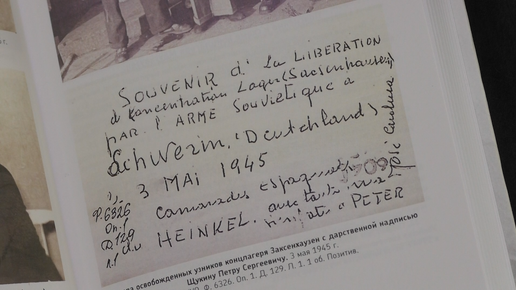 SOUVENIR d' la LIBERATION
d Koncentration Lager (Sacsenhausen)
PAR. l' ARME SOUVIETIQUE a
Schwerin. (Deutchland)
3 MAI 1945
Camarades Espagnols
HEINKEL. a PETER
José
P. 6326
Оп. 1
Д 129
л. 1
освобожденных узников концлагеря Заксенхаузен с дарственной надписью
Щукину Петру Сергеевичу. 3 мая 1945 г.
Ф. 6326. Оп. 1. Д. 129. Л. 1 об. Позитив.